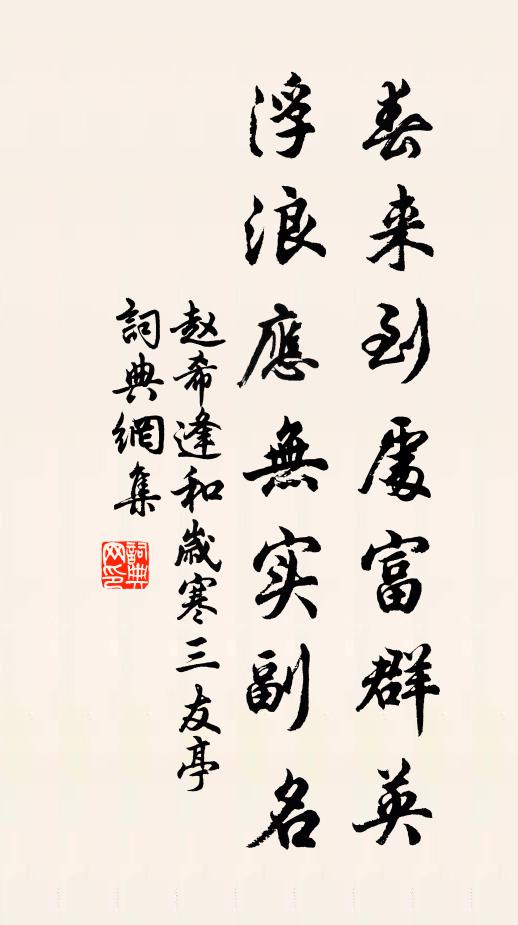 春来到處富群英
浮浪應無实副名
赵希逢和歲寒三友亭
詞典網集
詞典网印